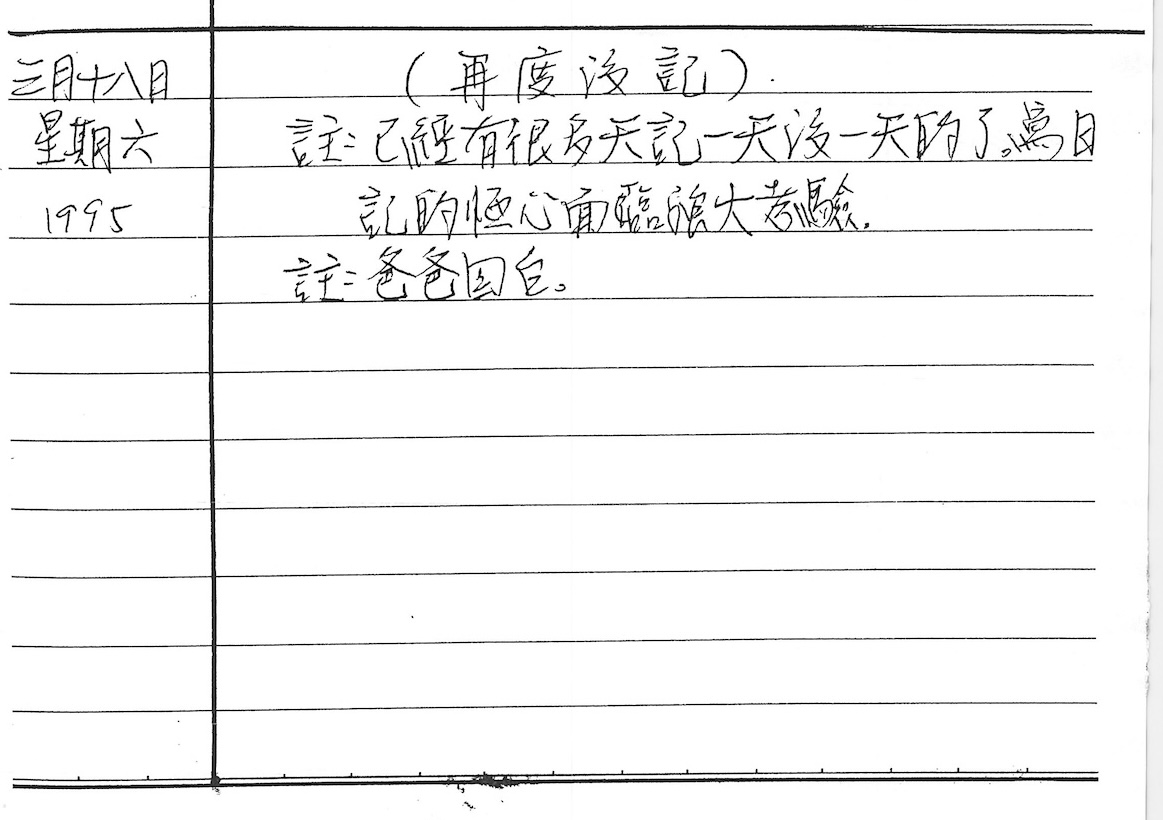 三月十八日
星期六
1995
(再度沒記).
註:已經有很多天記一天沒一天的了。寫日
記的恆心面臨強大考驗.
註:爸爸回台。